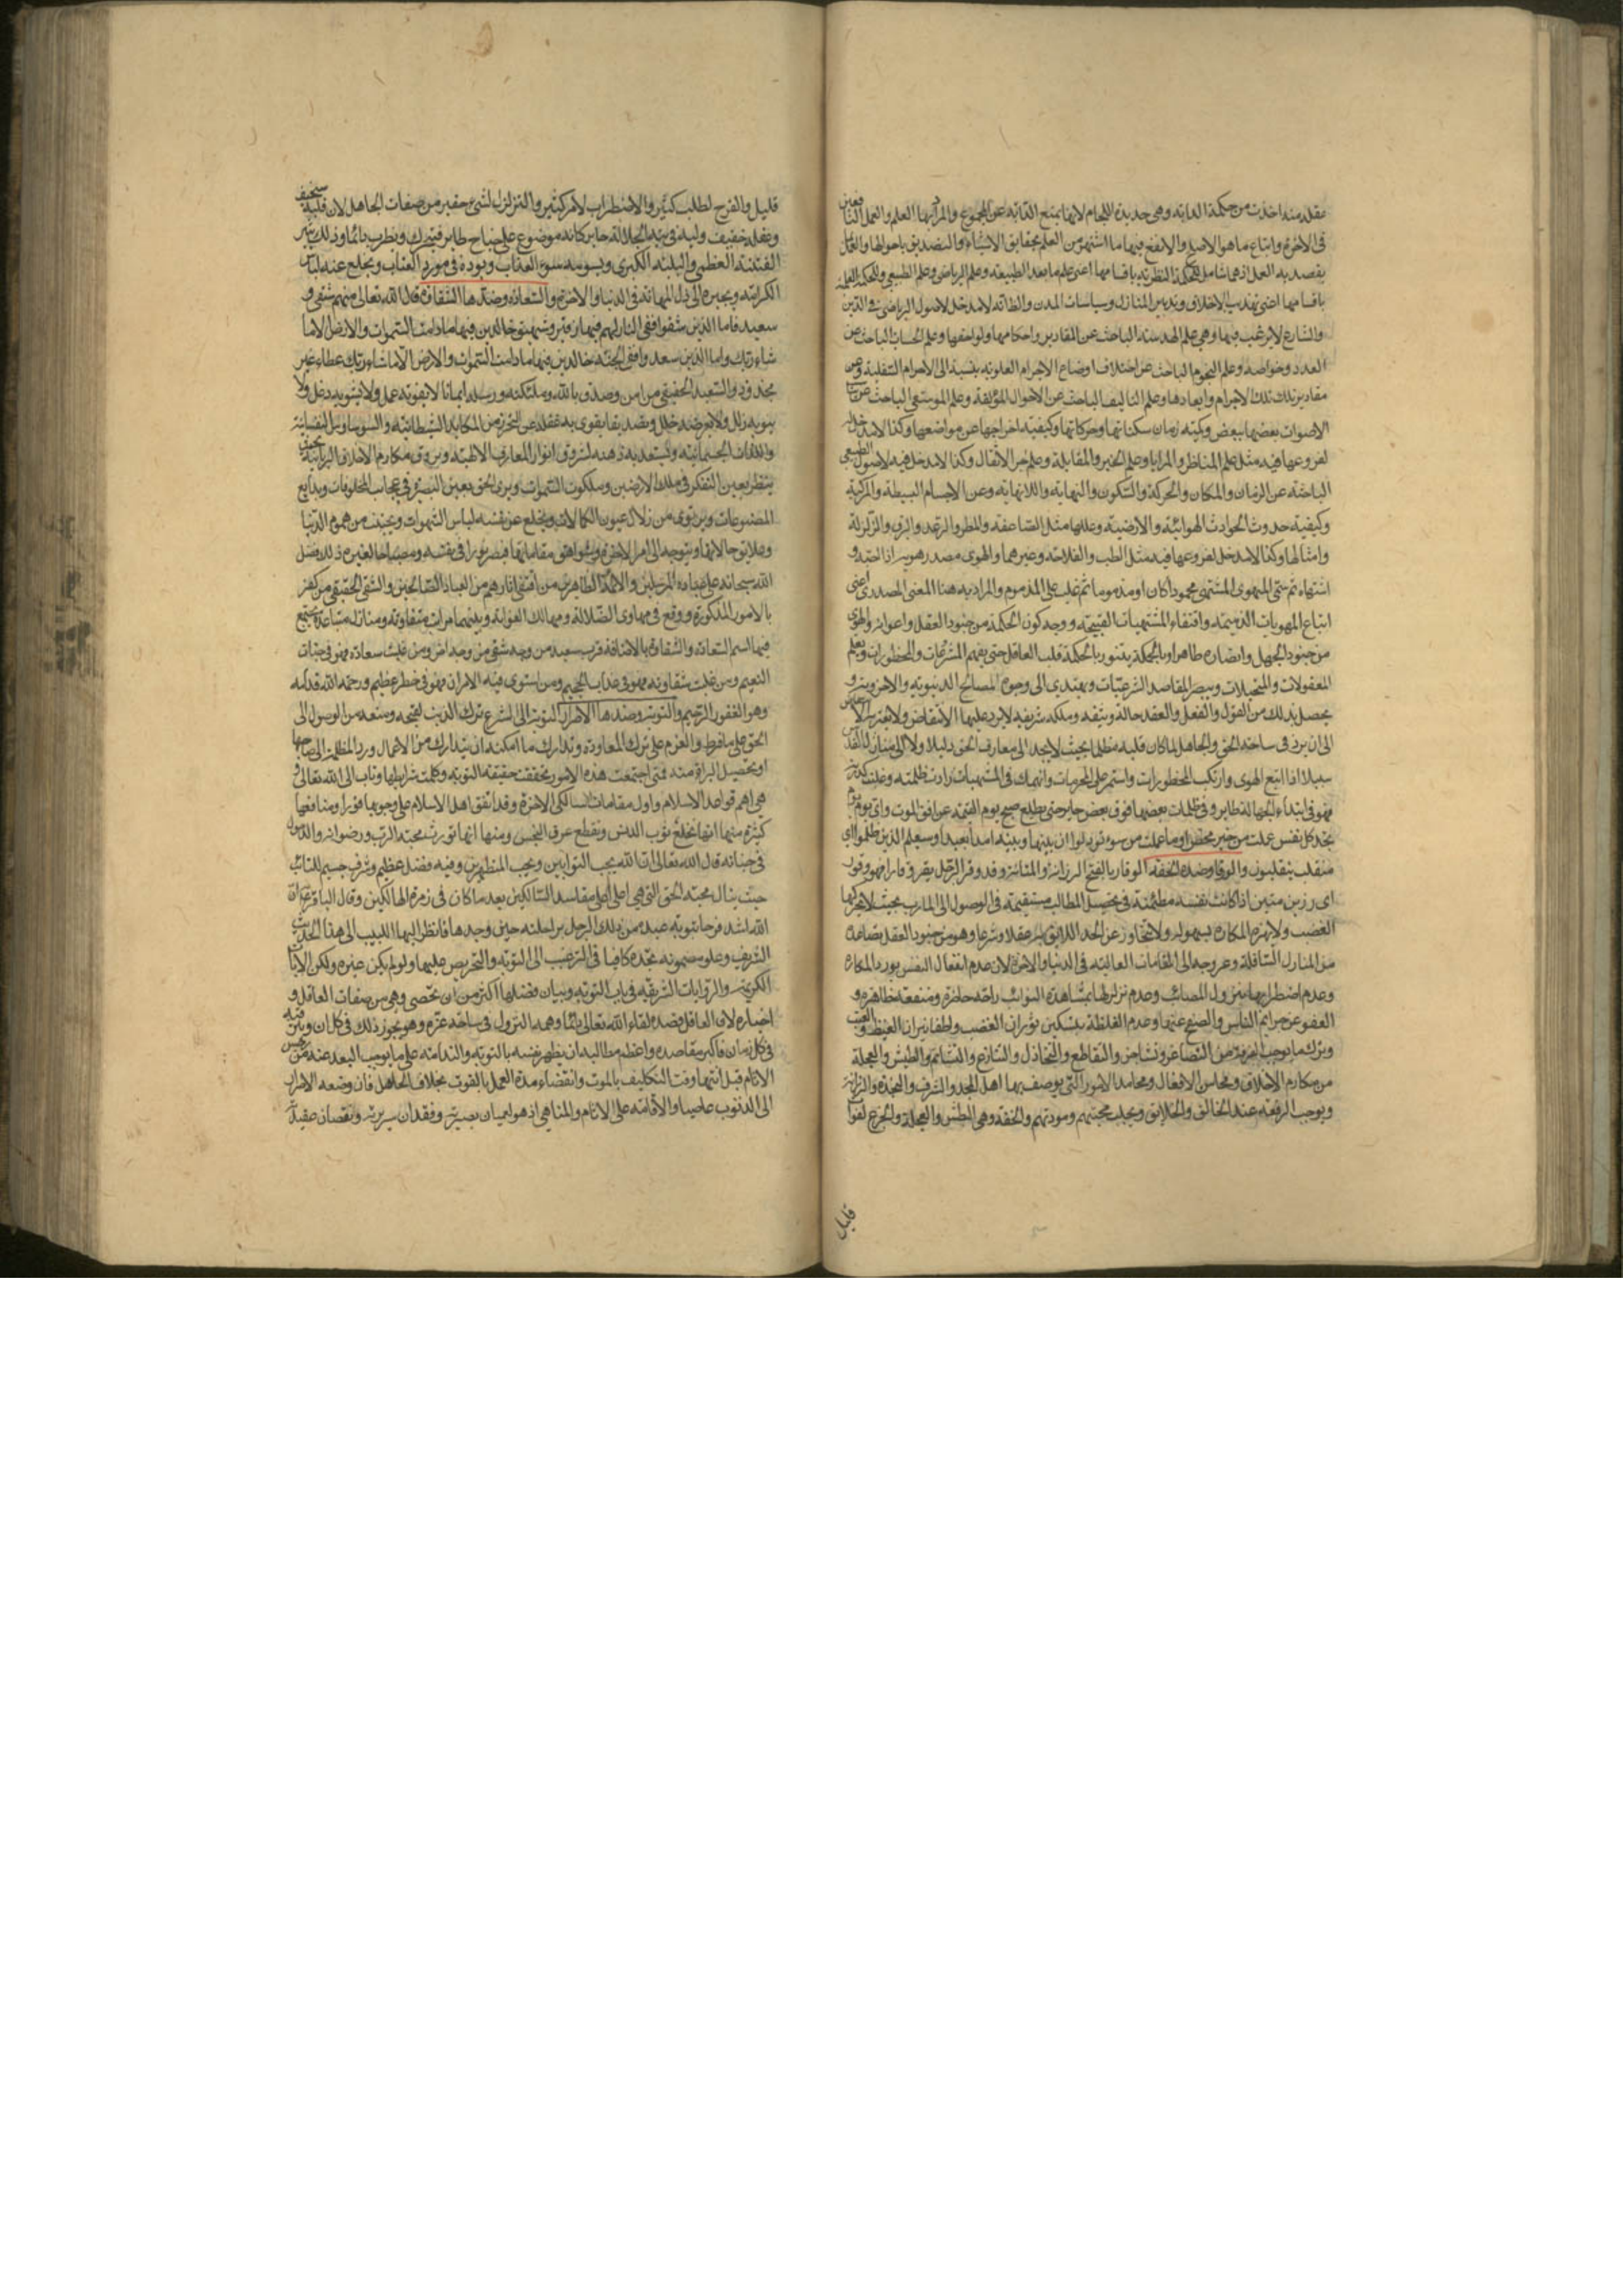 بعقله منه اخذت من حكمة الدابة وهي حديدة اللجام لانها تمنع الدابة عن الجموح والمراد بها العلم والعمل النافعين
في الاخرة واتباع ما هو الاصلح والانفع فيهما ما اشتهر من العلم بحقايق الاشياء والتصديق باحوالها والعمل
يقصد به العمل اذ هي شامل للحكمة النظرية باقسامها اعني علم ما بعد الطبيعة وعلم الرياضي وعلم الطبيعي والحكمة العملية
باقسامها اعني تهذيب الاخلاق وتدبير المنازل وسياسات المدن والظاهر لا مدخل لاصول الرياضي في الدين
والشارع لا يرغب فيها وهي علم الهندسة الباحث عن المقادير واحكامها ولواحقها وعلم الحساب الباحث عن
العدد وخواصه وعلم النجوم الباحث عن اختلاف اوضاع الاجرام العلوية بنسبة الى الاجرام السفلية وعن
مقادير تلك الاجرام وابعادها وعلم التاليف الباحث عن الاحوال المؤلفة وعلم الموسيقى الباحث عن
الاصوات بعضها ببعض وكمية زمان سكناتها وحركاتها وكيفية اخراجها عن مواضعها وكذا لا مدخل
لفروعها فيه مثل علم المناظر والمرايا وعلم الجبر والمقابلة وعلم جر الاثقال وكذا لا مدخل فيه لاصول الطبيعي
الباحثة عن الزمان والمكان والحركة والسكون والنهاية واللانهاية وعن الاجسام البسيطة والمركبة
وكيفية حدوث الحوادث الهوائية والارضية وعللها مثل الصاعقة والمطر والرعد والبرق والزلزلة
وامثالها وكذا لا مدخل لفروعها فيه مثل الطب والفلاحة وغيرهما والهوى مصدر هويه اذا احبه و
اشتهاه ثم سمّي المهوي المشتهى محمودا كان او مذموما ثم غلب على المذموم والمراد به هنا المعنى المصدري اعني
اتباع المهويات الذميمة واقتفاء المشتهيات القبيحة ووجه كون الحكمة من جنود العقل واعوانه والهوى
من جنود الجهل وانصاره ظاهر اذ بالحكمة يتنور قلب العاقل حتى يفهم المشروعات والمحظورات ويعلم
المعقولات والمتخيلات ويبصر المقاصد الشرعيات ويهتدي الى وجوه المصالح الدنيوية والاخروية و
يحصل بذلك من القول والفعل والعقد حالة وثيقة وملكة شريفة لا يرد عليها الانتقاض ولا يعتريها
الى ان يرد في ساحة الحق والجاهل لما كان قلبه مظلما بحيث لا يجد الى معارف الحق دليلا ولا الى منازل القدس
سبيلا اذا اتبع الهوى وارتكب المحظورات واستمر على المحرمات وانهمك في المشتهيات زادت ظلمته وغلبت
فهو في ظلمات بعضها فوق بعض حاير حتى يطلع صبح يوم القيمة عن افق الموت واي يوم
تجد كل نفس ما عملت من خير محضرا وما عملت من سوء تود لو ان بينها وبينه امدا بعيدا وسيعلم الذين ظلموا اي
منقلب ينقلبون والوقار وضده الخفة الوقار بالفتح الرزانة والمتانة وقد وقر الرجل يقر وقارا فهو وقور
اي رزين متين اذا كانت نفسه مطمئنة في تحصيل المطالب مستقيمة في الوصول الى المآرب بحيث لا يحركها
الغضب ولا يهزه المكاره بسهولة ولا تتجاوز عن الحد اللايق بها عقلا وشرعا وهو من جنود العقل يصاعده
من المنازل السافلة وعروجه الى المقامات العالية في الدنيا والاخرة لان عدم انفعال النفس بورد المكاره
وعدم اضطرابها بنزول المصائب وعدم تزلزلها بمشاهدة النوائب راحة حاضرة ومنفعة ظاهرة و
العفو عن جرايم الناس والصفح عنها وعدم الغلظة بتسكين ثوران الغضب واطفا نيران الغيظ و
وترك ما يوجب الفرقة من التصاغر وتشاجر والتقاطع والتخاذل والتنازع والتشاتم والطيش والعجلة
من مكارم الاخلاق ومحاسن الافعال ومحامد الامور التي يوصف بها اهل المجد والشرف والنجدة والرزانة
ويوجب الرفعة عند الخالق والخلايق ويجلب محبتهم ومودتهم والخفة وهي الطيش والعجلة والجزع لفوات
قليل
قليل والفرح لطلب كثير والاضطراب لامر كثير والتزلزل لشيء حقير من صفات الجاهل لان قلبه سخيف
وعقله خفيف ولبه في تيه الجهالة حاير كانه موضوع على جناح طاير فيتحرك ويطرب دائما وذلك يثير
الفتنة العظمى والبلية الكبرى ويسومه سوء العذاب ويورده في مورد العتاب ويخلع عنه لباس
الكرامة ويجره الى ذل المهانة في الدنيا والاخرة والسعادة وضدها الشقاوة قال الله تعالى فمنهم شقي و
سعيد فاما الذين شقوا ففي النار لهم فيها زفير وشهيق خالدين فيها ما دامت السموات والارض الا ما
شاء ربك واما الذين سعدوا ففي الجنة خالدين فيها ما دامت السموات والارض الا ما شاء ربك عطاء غير
مجذوذ والسعيد الحقيقي من امن وصدق بالله وملئكته ورسله ايمانا لا يفوته عمل ولا يشوبه دغل ولا
ينوبه زلل ولا يعرضه خلل وتصديقا يقوى به عقله عن التحرز من المكايد الشيطانية والتسويلات النفسانية
واللذات الجسمانية ويستعد به ذهنه لشروق انوار المعارف الالهية وبروق مكارم الاخلاق الربانية
ينظر بعين التفكر في ملك الارضين وملكوت السموات ويرى الحق بعين البصيرة في عجايب المخلوقات وبدايع
المصنوعات ويرتوي من زلال عيون الكمالات ويخلع عن نفسه لباس الشهوات ويجتنب من هموم الدنيا
وعلايق حالاتها ويتوجه الى امر الاخرة وشواهق مقاماتها فيصير نورا في نفسه ومصباحا لغيره ذلك فضل
الله سبحانه على عباده المرسلين والائمة الطاهرين ومن اقتفى اثارهم من العباد الصالحين والشقي الحقيقي من كفر
بالامور المذكورة ووقع في مهاوي الضلالة ومهالك الغواية وبينهما مراتب متفاوتة ومنازل متباعدة يجتمع
فيها اسم السعادة والشقاوة بالاضافة فرب سعيد من وجه شقي من وجه اخر ومن غلبت سعادته فهو في جنات
النعيم ومن غلبت شقاوته فهو في عذاب الجحيم ومن استوى فيه الامران فهو في خطر عظيم ورحمة الله قدامه
وهو الغفور الرحيم والتوبة وضدها الاصرار التوبة في الشرع ترك الذنب لقبحه ومنعه من الوصول الى
الحق على ما فرط والعزم على ترك المعاودة وتدارك ما امكنه ان يتدارك من الاعمال ورد المظلمة الى صاحبها
او تحصيل البراءة منه فمتى اجتمعت هذه الامور تحققت حقيقة التوبة وكملت شرايطها وتاب الى الله تعالى و
هي اهم قواعد الاسلام واول مقامات سالكي الاخرة وقد اتفق اهل الاسلام على وجوبها فورا ومنافعها
كثيرة منها انها تخلع ثوب الدنس وتقطع عرق النجس ومنها انها تورث محبة الرب ورضوانه والدخول
في جنانه قال الله تعالى ان الله يحب التوابين ويحب المتطهرين وفيه فضل عظيم وشرف جسيم للتائب
حيث ينال محبة الحق التي هي اعلى مقاصد السالكين بعد ما كان في زمرة الهالكين وقال الباقر ع ان
الله اشد فرحا بتوبة عبده من ذلك الرجل براحلته حين وجدها فانظر ايها اللبيب الى هذا الحديث
الشريف وعلو مضمونه تجده كافيا في الترغيب الى التوبة والتحريص عليها ولو لم يكن غيره ولكن الايات
الكريمة والروايات الشريفة في باب التوبة وبيان فضلها اكثر من ان تحصى وهي من صفات العاقل و
اخباره لان العاقل قصده لقاء الله تعالى دائما وهمه النزول في ساحة عزه وهو يجوز ذلك في كل ان
في كل زمان فاكبر مقاصده واعظم مطالبه ان يطهر نفسه بالتوبة والندامة على ما يوجب البعد عنه من
الاثام قبل انتهاء وقت التكليف بالموت وانقضاء مدة العمل بالفوت بخلاف الجاهل فان وصفه الاصرار
الى الذنوب والاقامة على الاثام والمناهي اذ هو لفقدان بصيرته ونقصان عقيدته